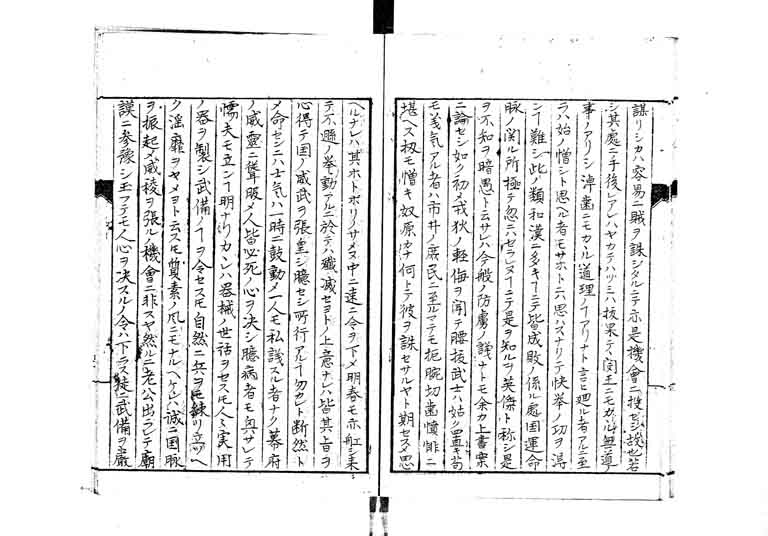 謀リシカハ容易ニ賊ヲ誅シタルニテ亦是機會ニ投セシ談也若
シ其處ニ手後レアレハヤカテハツミハ抜果テヽ閔王ニモカヽル無道ノ
事ノアリシ淖齒ニモカヽル道理ノアリナト言ヒ廻ル者アルニ至
ラハ始ノ憎シト思ヘル者モサホトニハ思ハスナリテ快挙ノ功ヲ得
ンヿ難シ此ノ類和漢ニ多キヿニテ皆成敗ノ係ル處国運命
脉ノ関ル所極テ忽ニハセラレヌヿニテ是ヲ知ルヲ英傑ト称シ是
ヲ不知ヲ暗愚ト云サレハ今般ノ防虜ノ議ナトモ余カ上書案
ニ論セシ如ク初メ戎狄ノ軽侮ヲ聞テ腰抜武士ハ姑ク置キ苟
モ義気アル者ハ市井ノ庶民ニ至ルマテモ扼腕切齒憤悱ニ
堪ヘス扨モ憎キ奴原カナ何トテ彼ヲ誅セサルヤト期セスメ思
ヘルナレハ其ホトボリノサメヌ中ニ速ニ令ヲ下メ明春モ亦舩シ来ヽ
テ不遜ノ挙動アルニ於テハ殲滅セヨトノ上意ナレハ皆其旨ヲ
心得テ国ノ威武ヲ張皇シ臆セシ所行アルヿ勿カレト断然ト
メ命セシニハ士気ハ一時ニ鼓動メ一人モ私議スル者ナク幕府
ノ威靈ニ聾服メ人皆必死ノ心ヲ決シ臆病者モ與サレテ
懦夫モ立ンヿ明ナリカヽレハ器械ノ世話ヲセスモ人々実用
ノ器ヲ製シ武備ノヿヲ令セスモ自然ニ兵ヲ練リ立ツヘ
ク淫靡ヲヤメヨト云スモ質素ノ風ニモナルヘケレハ誠ニ国脉
ヲ振起メ威稜ヲ張ルノ機會ニ非スヤ然ルニ老公出ラレテ廟
謨ニ参豫シ玉フテモ人心ヲ決スルノ令ハ下ラス徒ニ武備ヲ嚴